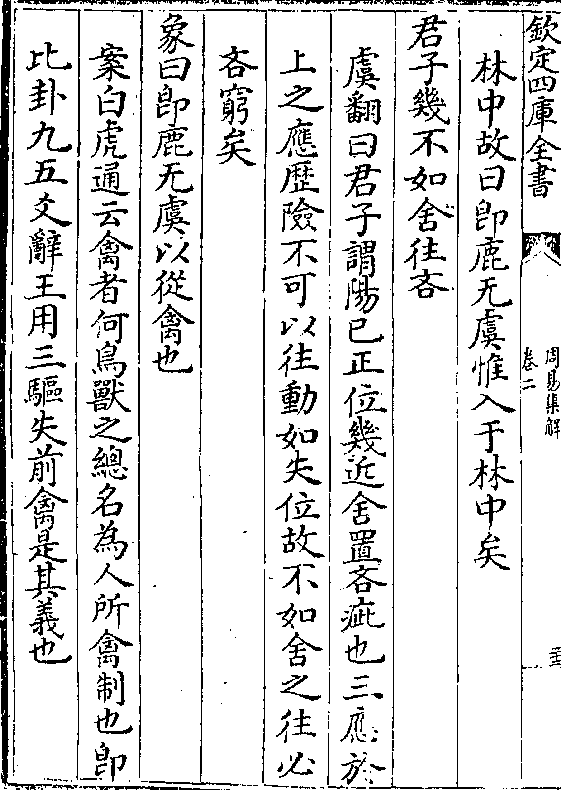 欽定四庫全書
周易集解
卷二
林中故曰即鹿无虞惟入于林中矣
君子幾不如舍往吝
虞翻曰君子謂陽已正位幾近舍置吝疵也三應於
上之應歴險不可以往動如失位故不如舍之往必
吝窮矣
象曰即鹿无虞以從禽也
案白虎通云禽者何鳥獸之總名為人所禽制也即
比卦九五爻辭王用三驅失前禽是其義也